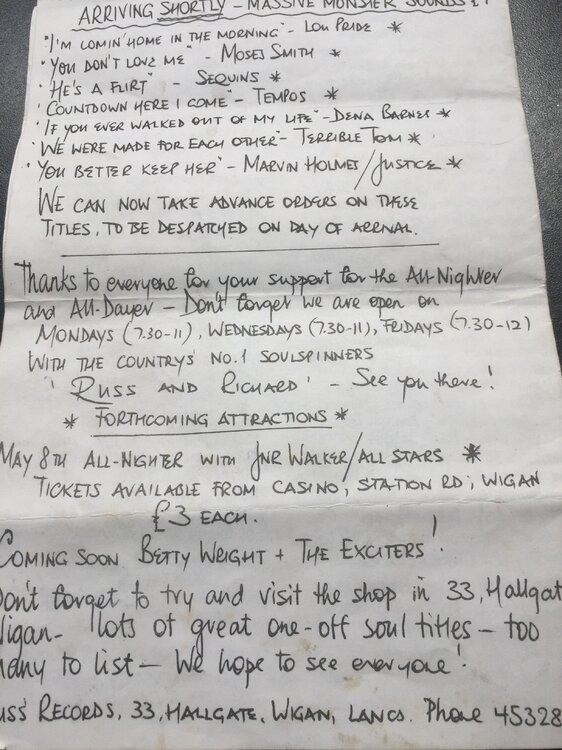 ARRIVING SHORTLY - MASSIVE MONSTER SOUNDS
"I'M COMIN' HOME IN THE MORNING" - LOU PRIDE *
"YOU DON'T LOVE ME" - MOSES SMITH *
"HE'S A FLIRT" - SEQUINS *
"COUNTDOWN HERE I COME" - TEMPOS *
"IF YOU EVER WALKED OUT OF MY LIFE" - DENA BARNES *
"WE WERE MADE FOR EACH OTHER" - TERRIBLE TOM *
"YOU BETTER KEEP HER" - MARVIN HOLMES/JUSTICE *
WE CAN NOW TAKE ADVANCE ORDERS ON THESE
TITLES, TO BE DESPATCHED ON DAY OF ARRIVAL.
Thanks to everyone for your support for the All-Nighter
and All-Dayer - Don't forget we are open on
MONDAYS (7.30-11), WEDNESDAYS (7.30-11), FRIDAYS (7.30-12)
WITH THE COUNTRYS' NO.1 SOULSPINNERS
'RUSS AND RICHARD' - See you there!
* FORTHCOMING ATTRACTIONS *
MAY 8TH ALL-NIGHTER WITH JNR WALKER/ALL STARS *
TICKETS AVAILABLE FROM CASINO, STATION RD, WIGAN
£3 EACH.
COMING SOON BETTY WRIGHT + THE EXCITERS!
Don't forget to try and visit the shop in 33, Hallgat
Wigan - lots of great one-off soul titles - too
many to list - We hope to see everyone!
USS' RECORDS, 33, HALLGATE, WIGAN, LANCS. Phone 45328